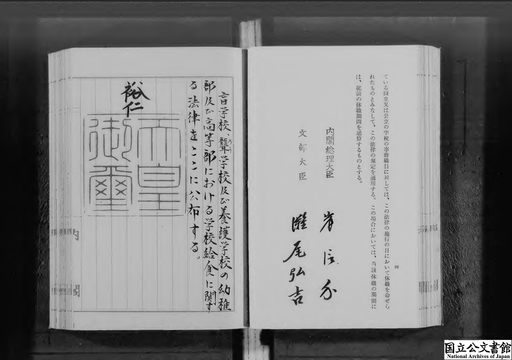 ている国立又は公立の学校の事務職員に対しては、この法律の施行の日において休職を命ぜら
れたものとみなして、この法律の規定を適用する。この場合においては、当該休職の期間に
は、従前の休職期間を通算するものとする。
内閣総理大臣 岸信介
文部大臣 灘尾弘吉
盲学校、聾学校及び養護学校の幼稚
部及び高等部における学校給食に関す
る法律をここに公布する。
裕仁
天皇
御璽
国立公文書館
National Archives of Japan